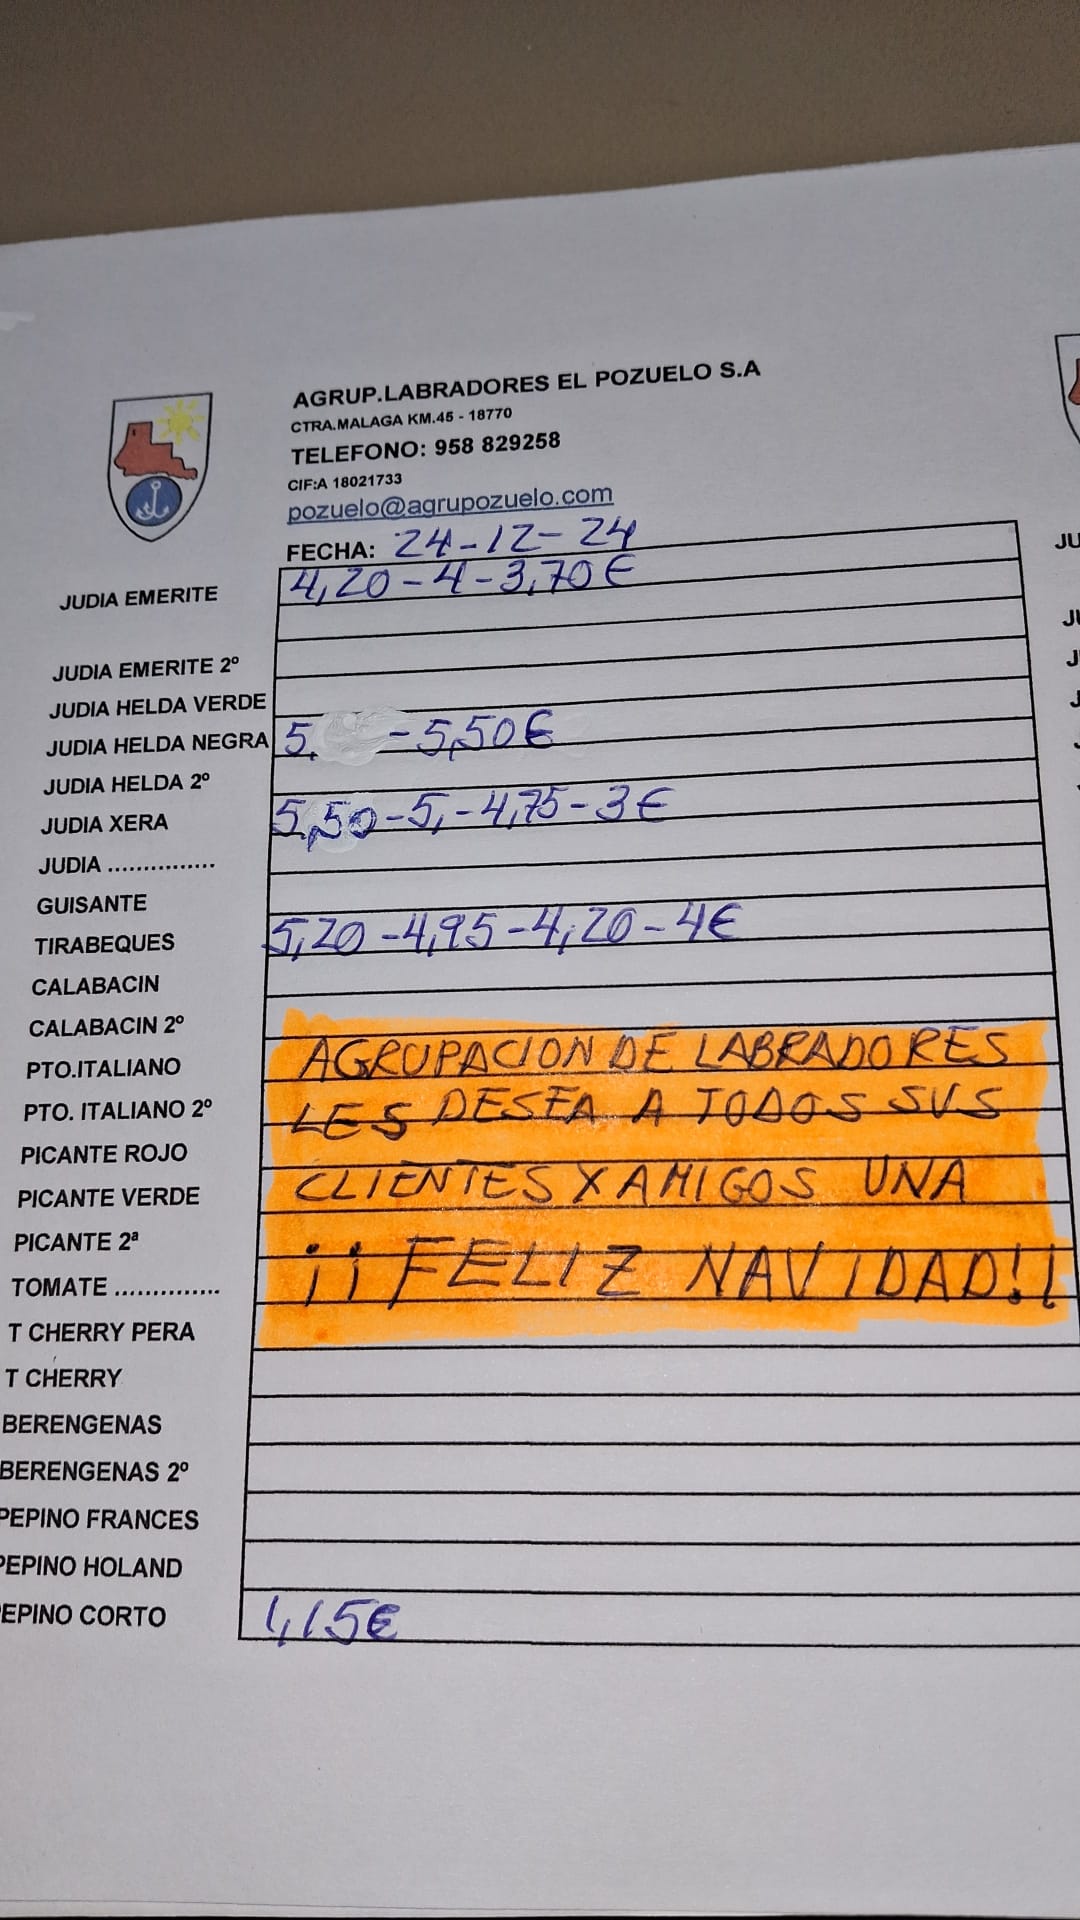 AGRUP.LABRADORES EL POZUELO S.A
CTRA.MALAGA KM.45 - 18770
TELEFONO: 958 829258
CIF:A 18021733
pozuelo@agrupozuelo.com
FECHA: 24-12-24
JUDIA EMERITE 4,20-4-3,70€
JUDIA EMERITE 2º
JUDIA HELDA VERDE
JUDIA HELDA NEGRA 5, -5,50€
JUDIA HELDA 2º
JUDIA XERA 5,50-5,-4,75-3€
JUDIA ...............
GUISANTE
TIRABEQUES 5,20-4,95-4,20-4€
CALABACIN
CALABACIN 2º
PTO.ITALIANO AGRUPACION DE LABRADORES
PTO. ITALIANO 2º LES DESEA A TODOS SUS
PICANTE ROJO
PICANTE VERDE CLIENTES Y AMIGOS UNA
PICANTE 2ª
TOMATE .............. ¡¡FELIZ NAVIDAD!!
T CHERRY PERA
T CHERRY
BERENGENAS
BERENGENAS 2º
PEPINO FRANCES
PEPINO HOLAND
EPINO CORTO 1,15€
JU
JU
J
J